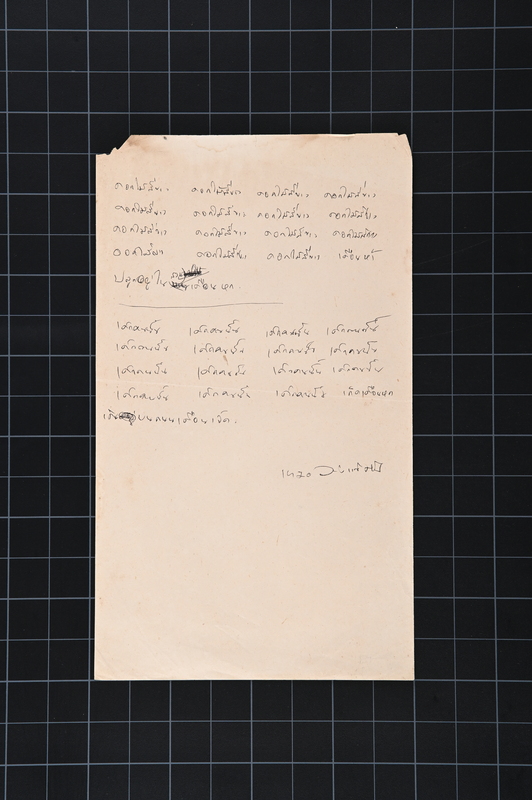 ดอกไม้สีขาว ดอกไม้สีขาว ดอกไม้สีขาว ดอกไม้สีขาว
ดอกไม้สีขาว ดอกไม้สีขาว ดอกไม้สีขาว ดอกไม้สีขาว
ดอกไม้สีขาว ดอกไม้สีขาว ดอกไม้สีขาว ดอกไม้สีขาว
ดอกไม้สีขาว ดอกไม้สีขาว ดอกไม้สีขาว เดือนห้า
ปลูกอยู่ใน เดือนหก.
เด็กคนนั้น เด็กคนนั้น เด็กคนนั้น เด็กคนนั้น
เด็กคนนั้น เด็กคนนั้น เด็กคนนั้น เด็กคนนั้น
เด็กคนนั้น เด็กคนนั้น เด็กคนนั้น เด็กคนนั้น
เด็กคนนั้น เด็กคนนั้น เด็กคนนั้น เกิดเดือนหก
บนถนนเดือนเจ็ด.